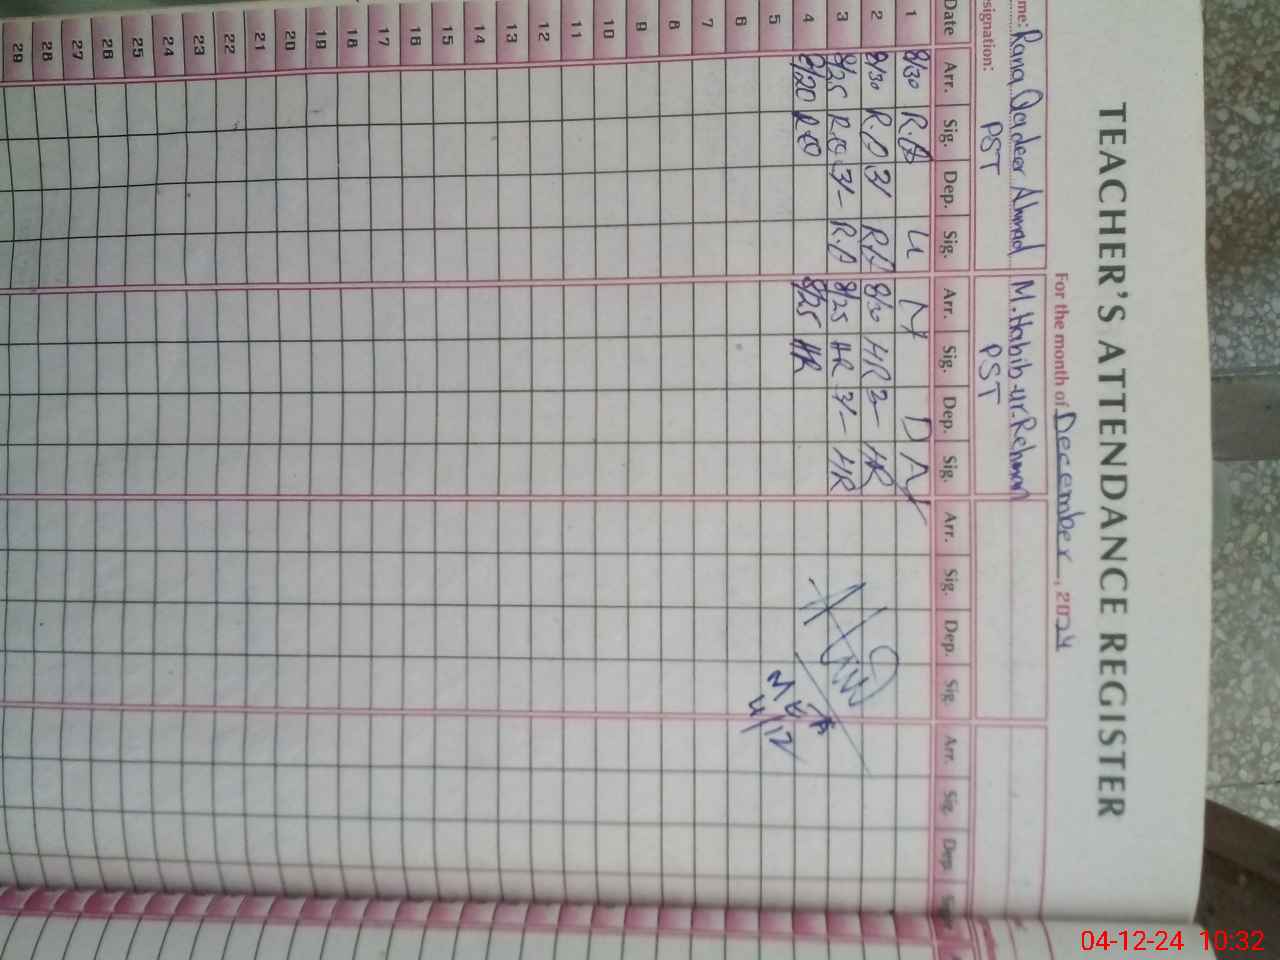 TEACHER'S ATTENDANCE REGISTER
For the month of December, 2024
me: Rana Qadeer Ahmad M.Habib-ur-Rehman
signation: PST PST
Date Arr. Sig. Dep. Sig. Arr. Sig. Dep. Sig. Arr. Sig. Dep. Sig. Arr. Sig. Dep. Sig.
1 8/30 R.A
2 8/30 R.A 3/ RA 8/30 HR 3/- HR
3 8/25 RA 3/- R.A 8/25 HR 3/- HR
4 8/20 8/25 HR
5
6
7
8
9
10
11
12
13
14
15
16
17
18
19
20
21
22
23
24
25
26
27
28
29
4/12
04-12-24 10:32